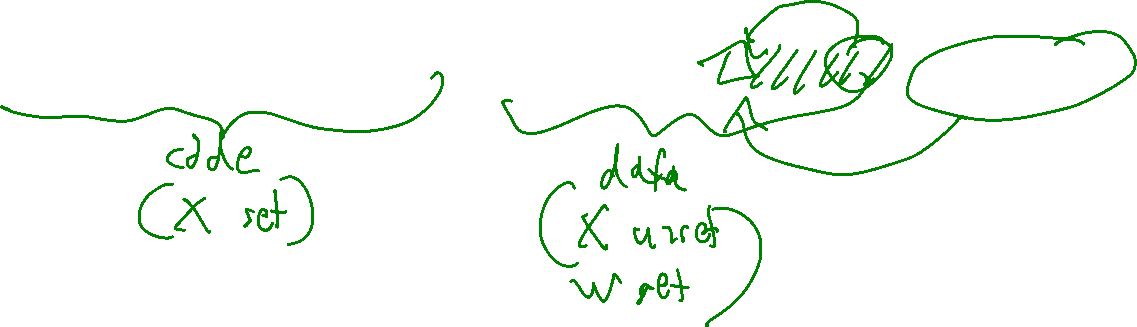 code
(X set)
data
(X unset
W set)